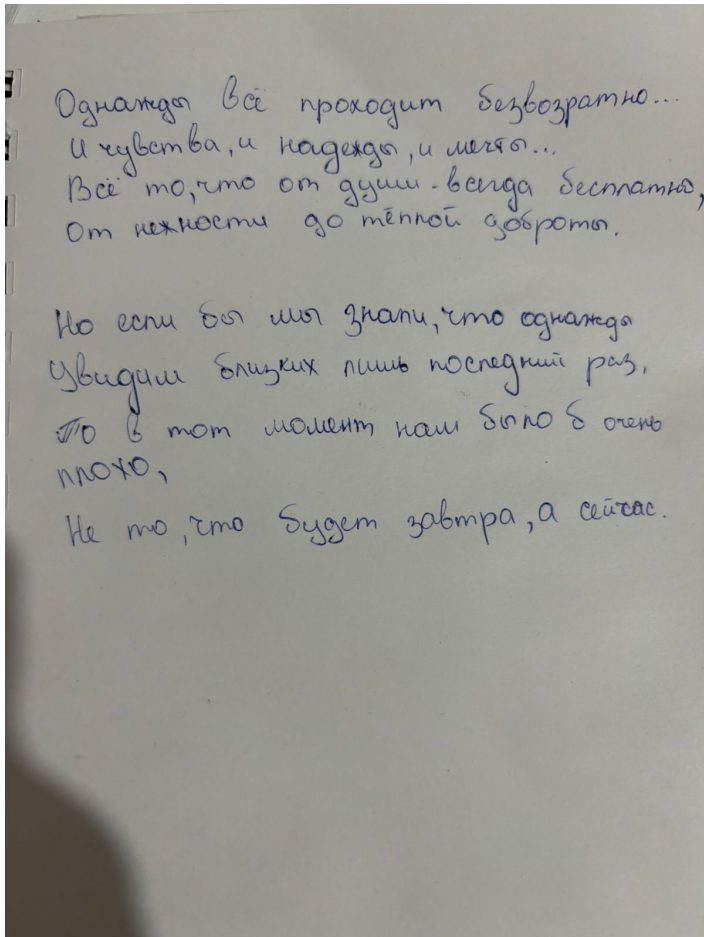 Однажды всё проходит безвозратно...
И чувства, и надежды, и мечты...
Всё то, что от души - всегда бесплатно,
От нежности до тёплой доброты.
Но если бы мы знали, что однажды
Увидим близких лишь последний раз,
То в тот момент нам было б очень
плохо,
Не то, что будет завтра, а сейчас.